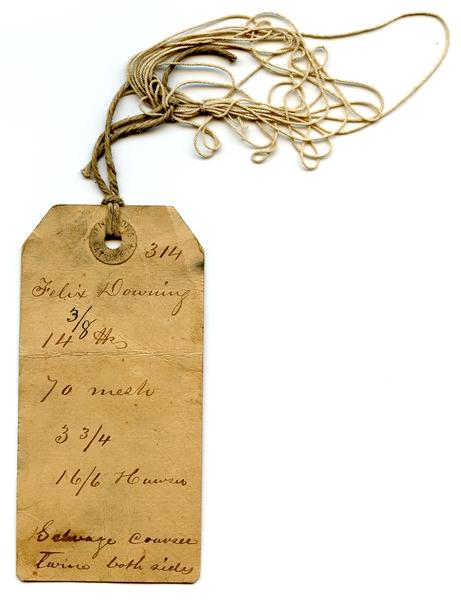 314
Felix Downing
3/8
14 lbs
70 mesh
3 3/4
16/6 Hawser
Selvage Courser
Twine both sides